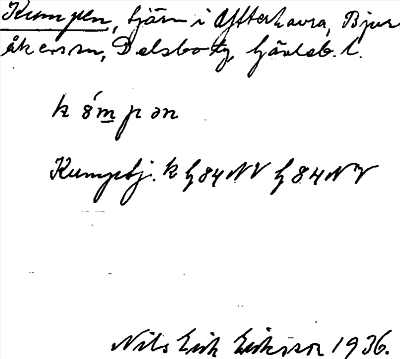 Kumpen, tjärn i Ytterhavra, Bjur
åkers sn, Delsbo tg, Gävleb. l.
k ö́m p ən
Kumptj. k G 84 NV G 84 NV
Nils Erik Eriksson 1936.